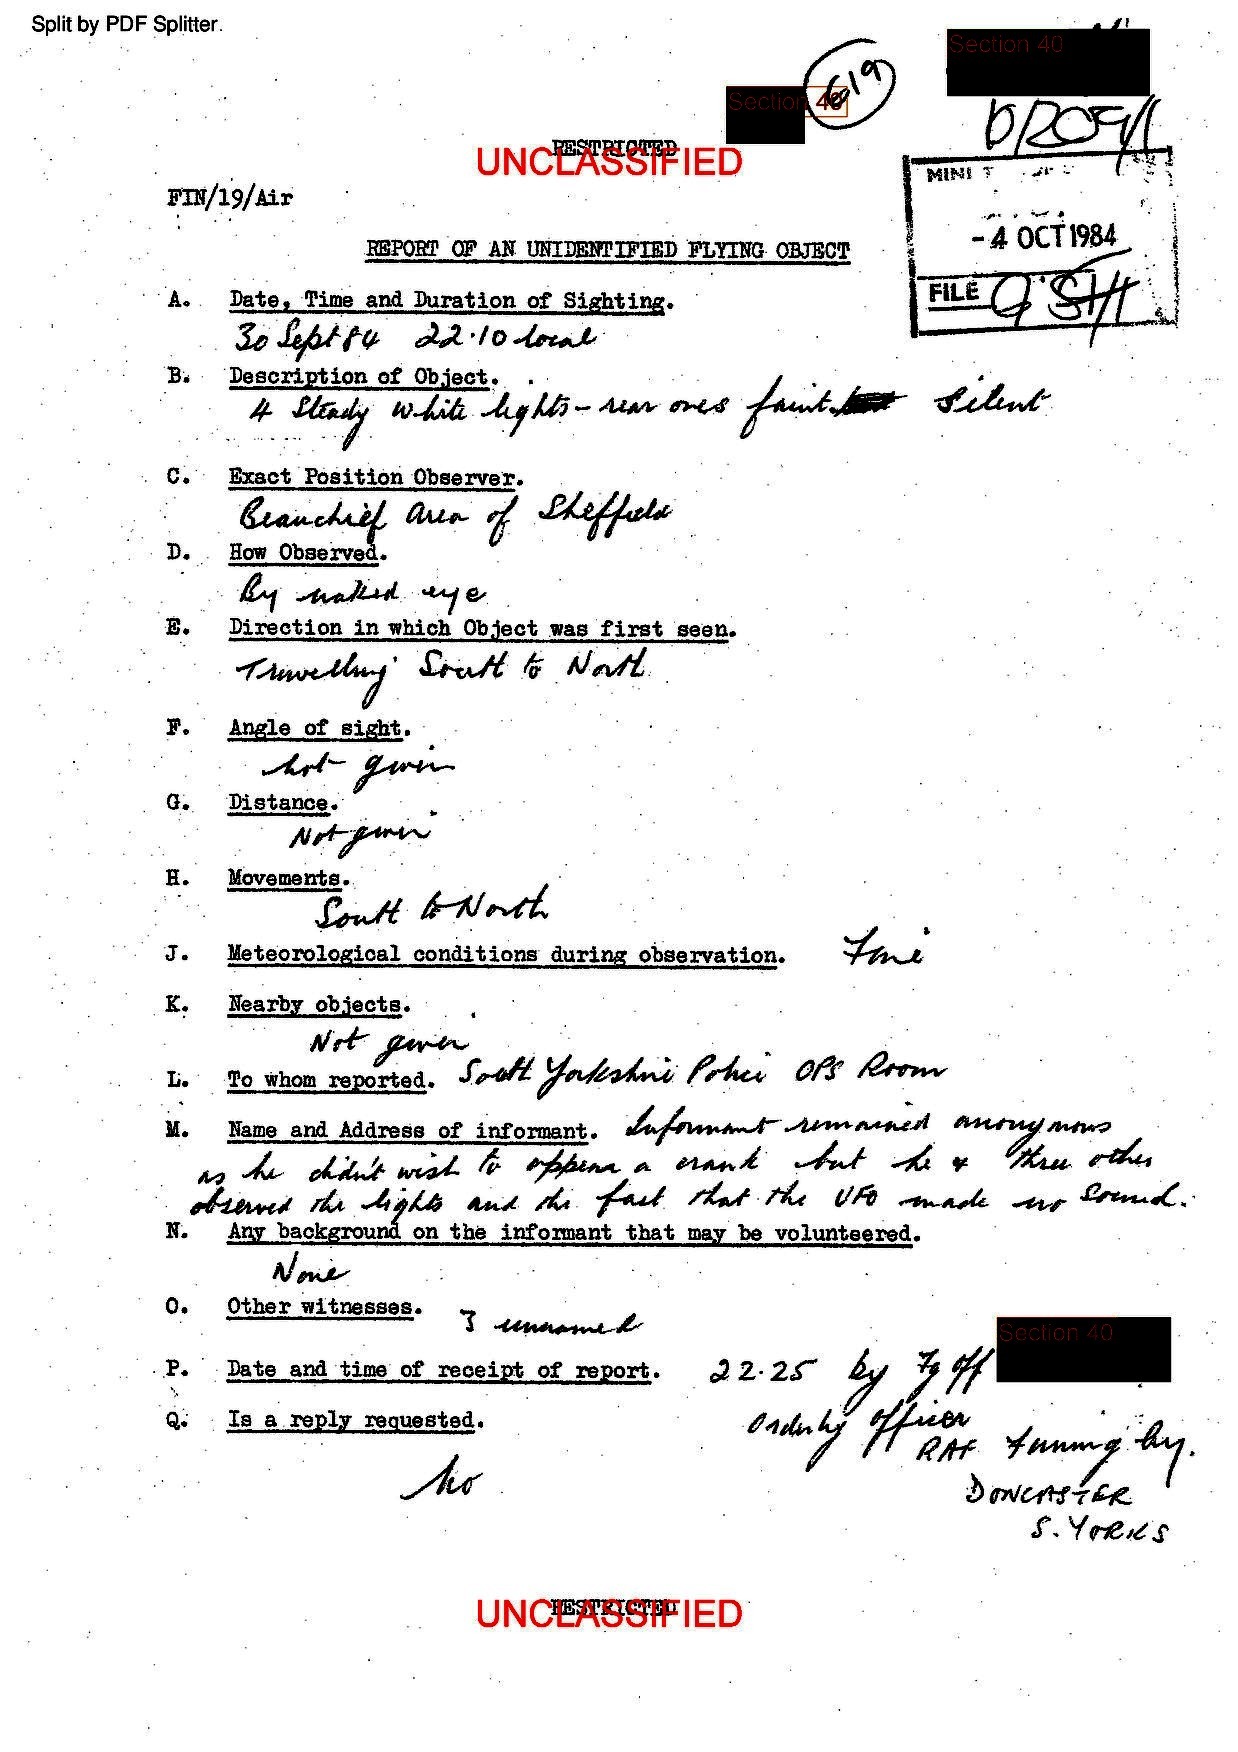 Split by PDF Splitter.
Section 40
619
Section 40
RESTRICTED
UNCLASSIFIED
FIN/19/Air
- 4 OCT 1984
FILE
REPORT OF AN UNIDENTIFIED FLYING OBJECT
A. Date, Time and Duration of Sighting.
30 Sept 84 22.10 local
B. Description of Object.
4 Steady white lights - rear ones faint. Silent
C. Exact Position Observer.
Beauchief Area of Sheffield
D. How Observed.
By naked eye
E. Direction in which Object was first seen.
Travelling South to North
F. Angle of sight.
Not given
G. Distance.
Not given
H. Movements.
South to North
J. Meteorological conditions during observation. Fine
K. Nearby objects.
Not given
L. To whom reported. South Yorkshire Police OPS Room
M. Name and Address of informant. Informant remained anonymous
as he didn't wish to appear a crank but he & three other
observed the lights and the fact that the UFO made no sound.
N. Any background on the informant that may be volunteered.
None
O. Other witnesses. 3 unnamed
Section 40
P. Date and time of receipt of report. 22.25 by Fg Off
Q. Is a reply requested. Orderly Officer
RAF Finningley.
No
DONCASTER
S. YORKS
RESTRICTED
UNCLASSIFIED